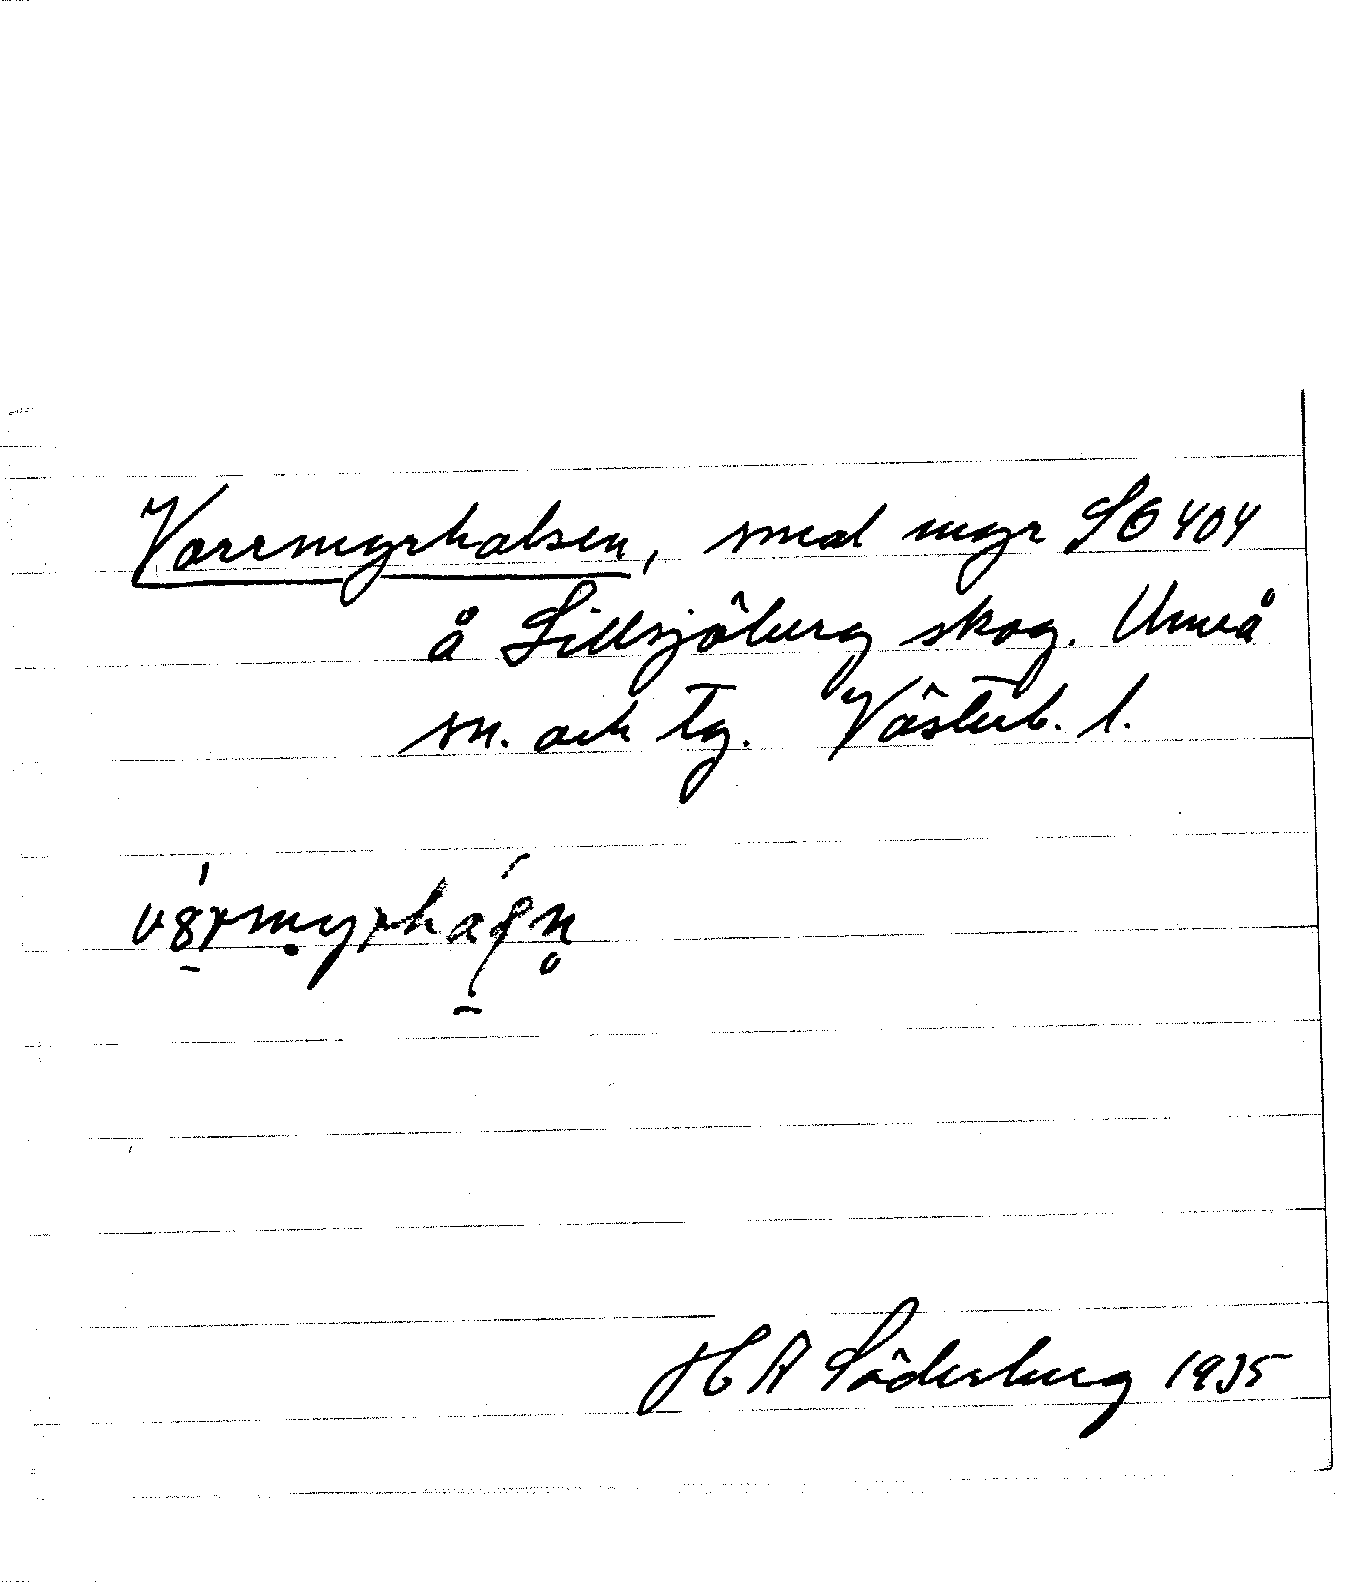 Varrmyrhalsen, med myr SO 404
å Lillsjöberg skog. Umeå
sn. och tg. Västerb. l.
H A Söderberg 1935